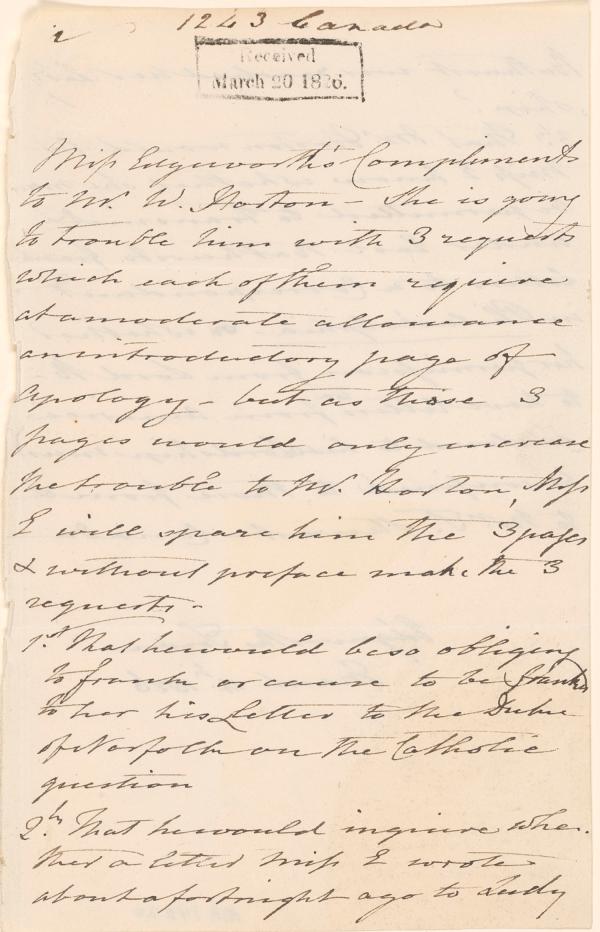 1243 Canada
Received
March 20 1826.
Miss Edgeworth's Compliments
to Mr. W. Horton – She is going
to trouble him with 3 requests
which each of them require
at a moderate allowance
an introductory page of
apology – but as these 3
pages would only increase
the trouble to Mr. Horton, Miss
E will spare him the 3 pages
& without preface make the 3
requests –
1st. That he would be so obliging
to frank or cause to be franked
to her his Letter to the Duke
of Norfolk on the Catholic
question
2ly. That he would inquire whe-
ther a letter Miss E wrote
about a fortnight ago to Lady